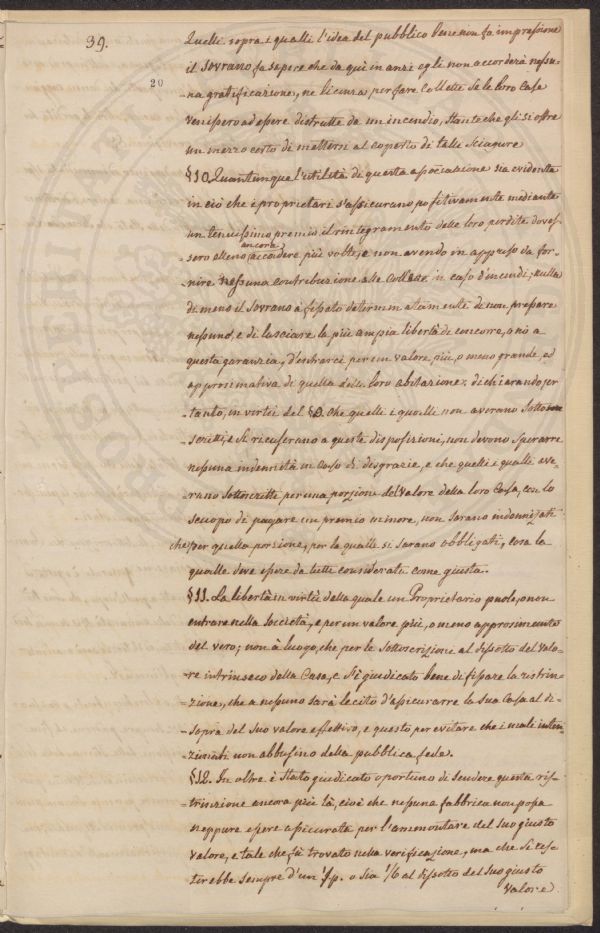 39.
20
Quelli sopra i qualli l'idea del pubblico bene non fa impressione
il Sovrano fa sapere che da quì in anzi egli non accorderà nessu-
-na gratificazione, ne licenza per fare Collette se le loro Case
venissero ad essere distrutte da un incendio, stante che gli si offre
un mezzo certo di mettersi al coperto di talli sciagure
§10. Quantunque l'utilità di questa associazione sia evidente
in ciò che i proprietarj s'assicurano positivamente mediante
un tenuissimo premio il rintegramento delle loro perdite doves-
ancora
sero alleno accadere più volte, e non avendo in appresso da for-
nire nessuna contribuzione alle Collette in caso d'incendi; nulla
di meno il Sovrano à fissato determinatamente di non pressare
nessuno, e di lasciare la più ampia libertà di concorre, o nò a
questa garanzia, d'entrarci per un valore più, o meno grande, ed
approssimativa di quella delle loro abitazione; dichiarando per
-tanto, in virtù del §9. che quelli i qualli non averano sotto
-scritti, e si ricuserano a queste disposizioni, non devono sperarre
nessuna indennità in caso di disgrazie, e che quelli i qualli ave-
-rano sottoscritte per una porzione del Valore della loro Casa, con lo
scuopo di pagare un premio minore, non sarano indennizati
che per quella porsione, per la qualle si sarano obbligati, cosa la
qualle deve essere da tutti considerata come giusta.
§11. La libertà in virtù della quale un Proprietario puole, o non
entrare nella società, e per un valore più, o meno approssimante
del vero; non à luogo, che per le sottoscrizione al dissotto del Valo-
-re intrinseco della Casa, e s'è giudicato bene di fissare la ristrin-
-zione, che a nessuno sarà lecito d'assicurarre la sua Casa al di-
-sopra del suo valore effettivo, e questo per evitare che i mali inten-
-zionati non abbusino della pubblica fede.
§12. In oltre è stato giudicato oportuno di stendere questa ris-
-trinzione ancora più là, cioè che nessuna fabbrica non possa
neppure essere assicurata per l'ammontare del suo giusto
valore, e tale che fù trovato nella verificazione, ma che si res-
-tirebbe sempre d'un o sia 1/6 al dissotto del suo giusto
valore